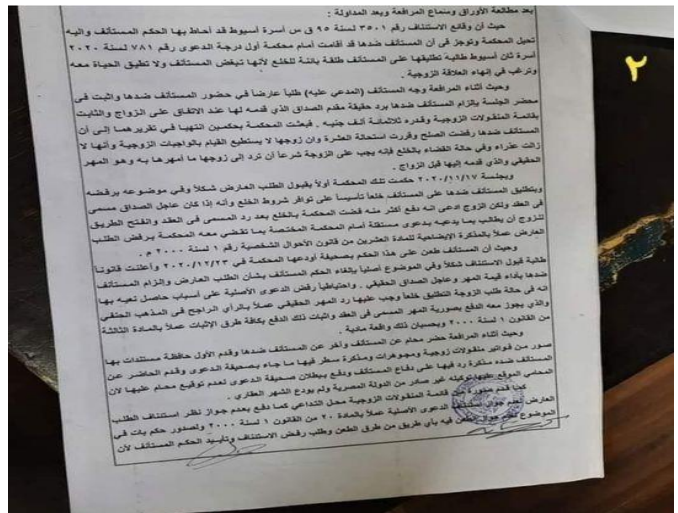 بعد مطالعة الأوراق وسماع المرافعة وبعد المداولة :
حيث أن وقائع الاستئناف رقم ٣٥٠١ لسنة ٩٥ ق س أسرة أسيوط قد أحاط بها الحكم المستأنف وإليه
تحيل المحكمة وتوجز فى أن المستأنف ضدها قد أقامت أمام محكمة أول درجة الدعوى رقم ٧٨١ لسنة ٢٠٢٠
أسرة ثان أسيوط طالبة تطليقها على المستأنف طلقة بائنة للخلع لأنها تبغض المستأنف ولا تطيق الحياة معه
وترغب في إنهاء العلاقة الزوجية .
وحيث أثناء المرافعة وجه المستأنف (المدعي عليه) طلباً عارضاً في حضور المستأنف ضدها واثبت فى
محضر الجلسة بالزام المستأنف ضدها برد حقيقة مقدم الصداق الذي قدمه لها عند الاتفاق على الزواج والثابت
بقائمة المنقولات الزوجية وقدره ثلاثمائة ألف جنيه . فبعثت المحكمة بحكمين انتهيا في تقريرهما إلى أن
المستأنف ضدها رفضت الصلح وقررت استحالة العشرة وان زوجها لا يستطيع القيام بالواجبات الزوجية وأنها لا
زالت عذراء وفي حالة القضاء بالخلع فإنه يجب على الزوجة شرعاً أن ترد إلى زوجها ما أمهرها به وهو المهر
الحقيقي والذي قدمه إليها قبل الزواج .
وبجلسة ٢٠٢٠/١١/١٧ حكمت تلك المحكمة أولاً بقبول الطلب العارض شكلاً وفي موضوعه برفضه
وبتطليق المستأنف ضدها على المستأنف خلعاً تأسيساً على توافر شروط الخلع وأنه إذا كان عاجل الصداق مسمى
فى العقد ولكن الزوج ادعى انه دفع أكثر منه قضت المحكمة بالخلع بعد رد المسمى فى العقد وانفتح الطريق
للزوج أن يطالب بما يدعيه بدعوى مستقلة أمام المحكمة المختصة بما تقضي معه المحكمة برفض الطلب
العارض عملاً بالمذكرة الإيضاحية للمادة العشرين من قانون الأحوال الشخصية رقم ١ لسنة ٢٠٠٠ م .
وحيث أن المستأنف طعن على هذا الحكم بصحيفة أودعها المحكمة في ٢٠٢٠/١٢/٢٣ وأعلنت قانوناً
طالبة قبول الاستئناف شكلاً وفى الموضوع أصلياً بإلغاء الحكم المستأنف بشأن الطلب العارض وإلزام المستأنف
ضدها بأداء قيمة المهر وعاجل الصداق الحقيقي . واحتياطياً رفض الدعوى الأصلية على أسباب حاصل نعيه بها
انه فى حالة طلب الزوجة التطليق خلعاً وجب عليها رد المهر الحقيقي عملاً بالرأي الراجح فى المذهب الحنفي
والذي يجوز معه الدفع بصورية المهر المسمى فى العقد واثبات ذلك الدفع بكافة طرق الإثبات عملاً بالمادة الثالثة
من القانون ١ لسنة ٢٠٠٠ وبحسبان ذلك واقعة مادية .
وحيث أثناء المرافعة حضر محام عن المستأنف وآخر عن المستأنف ضدها وقدم الأول حافظة مستندات بها
صور من فواتير منقولات زوجية ومجوهرات ومذكرة سطر فيها ما جاء بصحيفة الدعوى وقدم الحاضر عن
المستأنف ضده مذكرة رد فيها على دفاع المستأنف ودفع ببطلان صحيفة الدعوى لعدم توقيع محام عليها لأن
المحامي الموقع عليها توكيله غير صادر من الدولة المصرية ولم يودع الشهر العقاري .
كما قدم صورة من قائمة المنقولات الزوجية محل التداعي كما دفع بعدم جواز نظر استئناف الطلب
العارض لعدم جواز استئناف الدعوى الأصلية عملاً بالمادة ٢٠ من القانون ١ لسنة ٢٠٠٠ ولصدور حكم بات في
الموضوع لعدم جواز الطعن فيه بأي طريق من طرق الطعن وطلب رفض الاستئناف وتأييد الحكم المستأنف لأن
٢